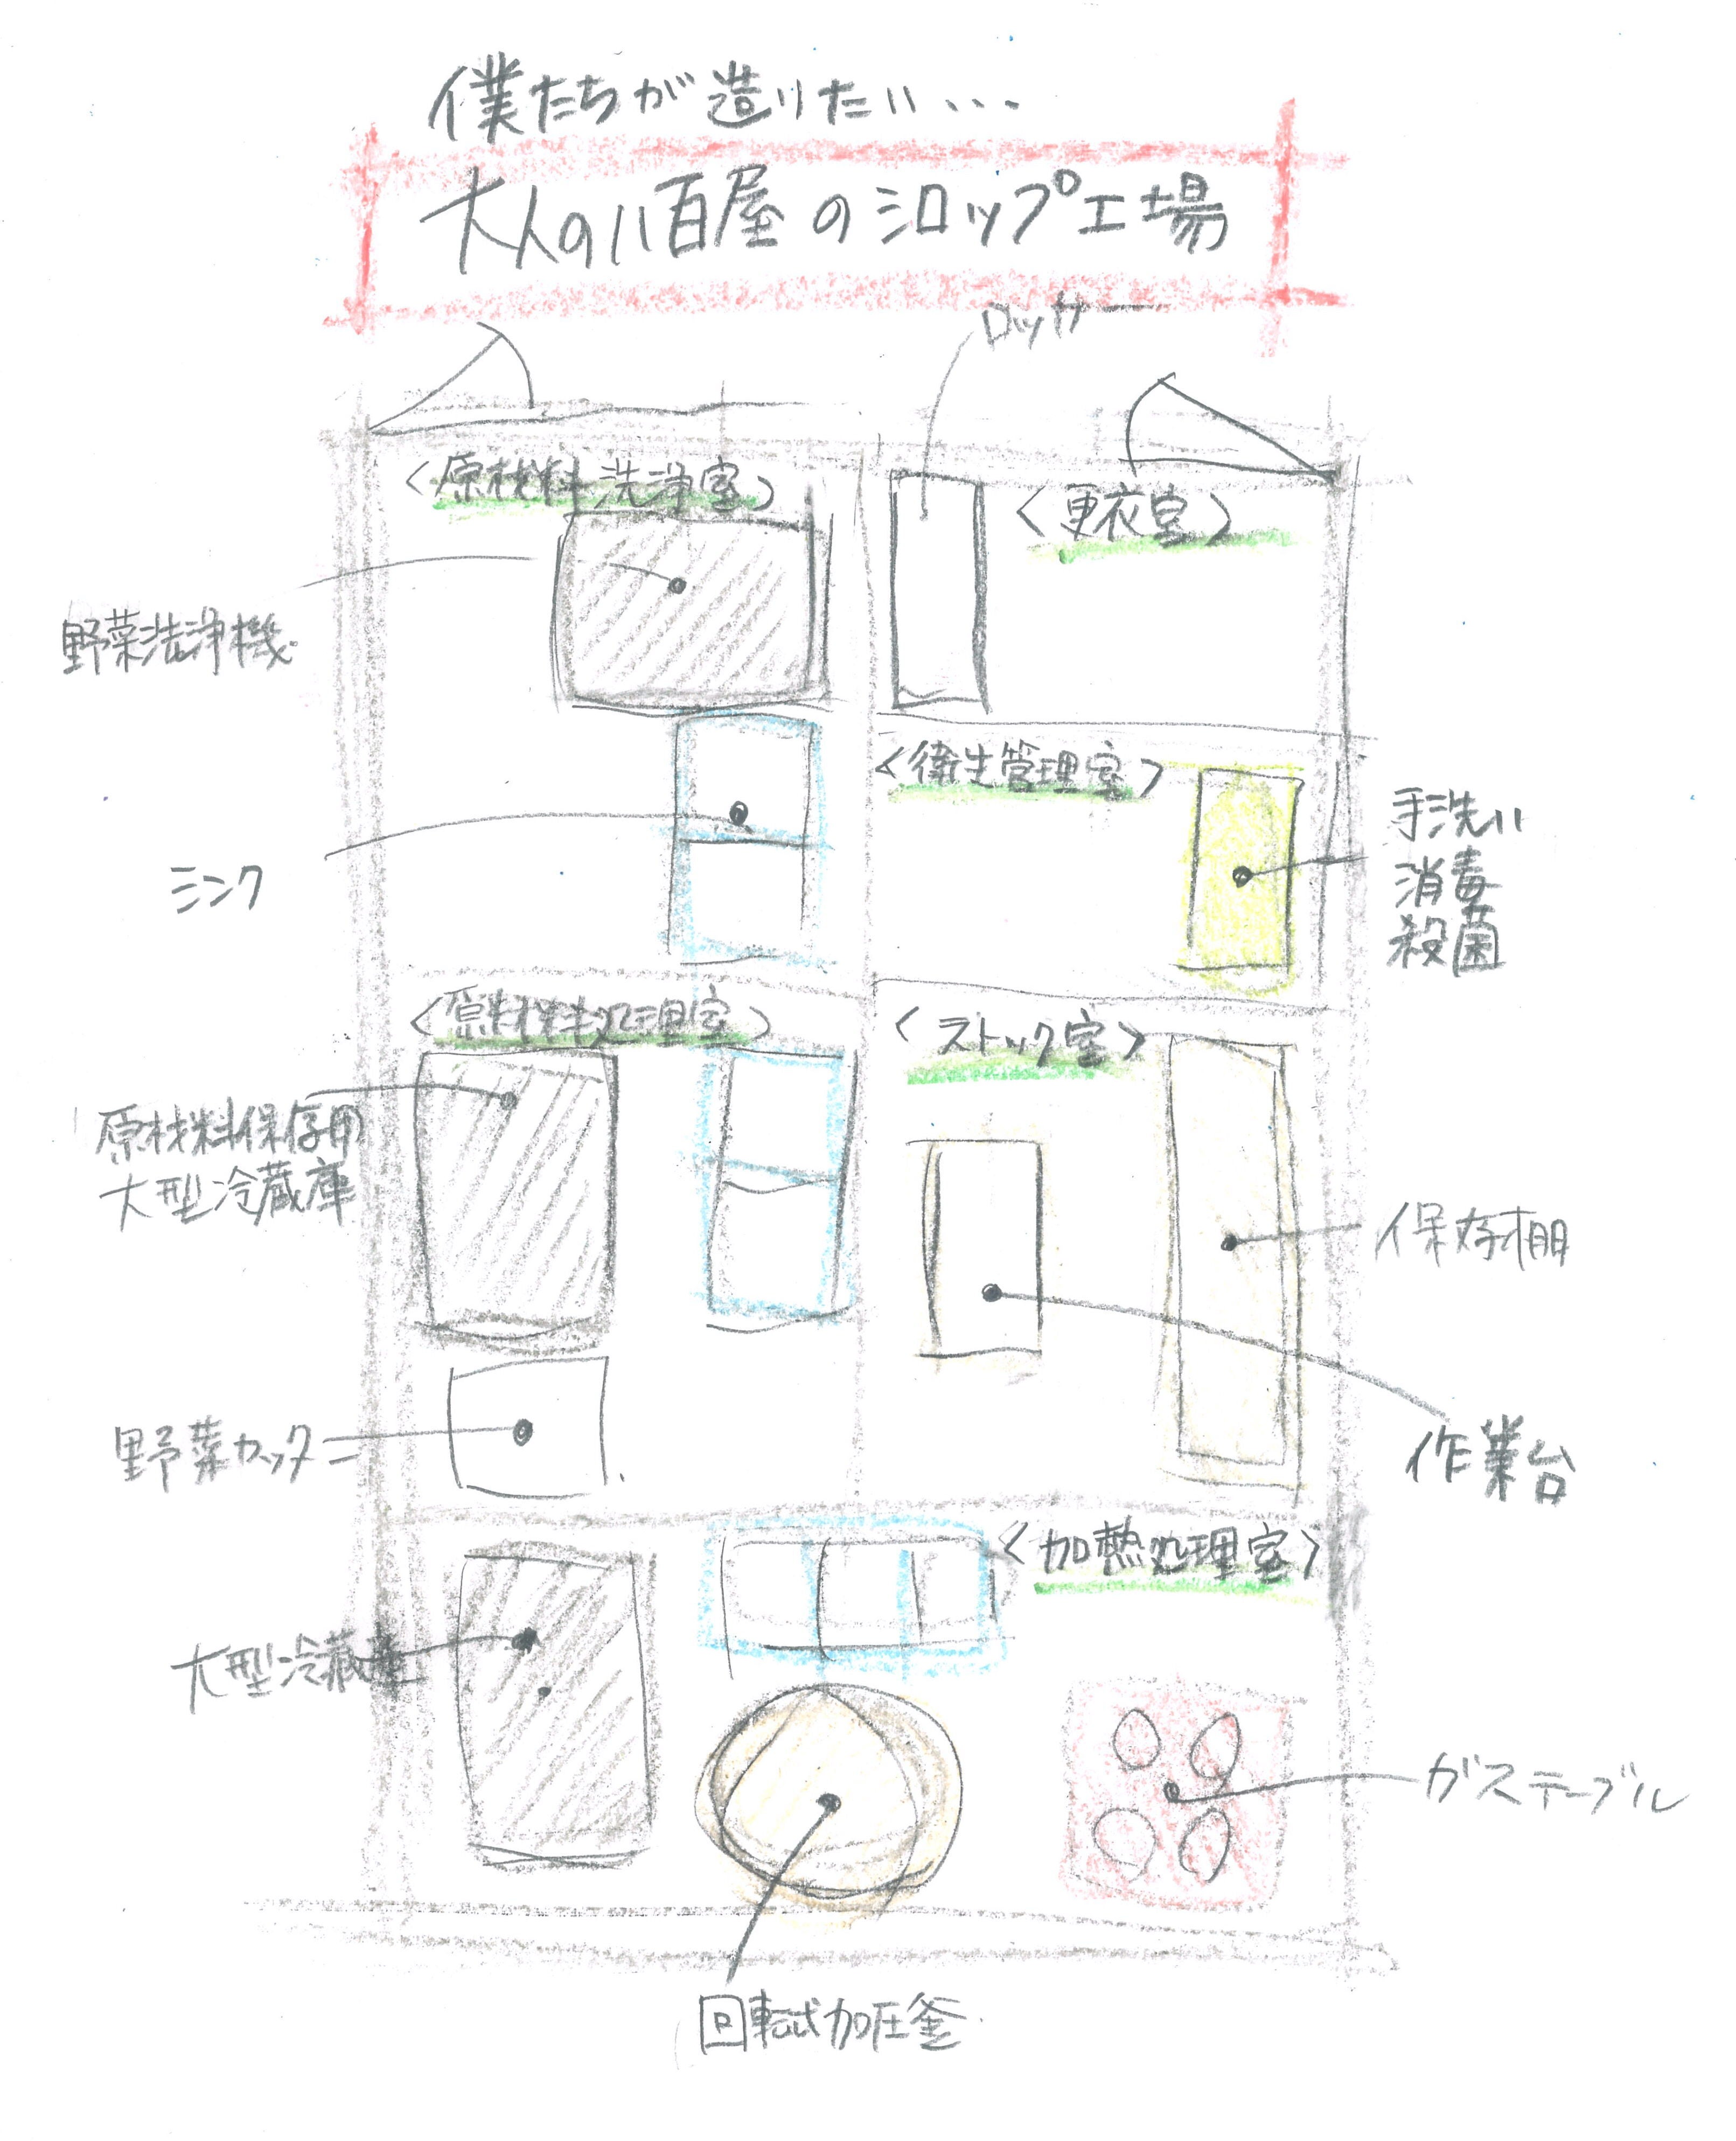 僕たちが造りたい...
大人の八百屋のシロップ工場
ロッカー
〈原材料洗浄室〉
〈更衣室〉
野菜洗浄機
〈衛生管理室〉
シンク
手洗い
消毒
殺菌
〈原材料処理室〉
〈ストック室〉
原材料保存用
大型冷蔵庫
保存棚
野菜カッター
作業台
〈加熱処理室〉
大型冷蔵庫
ガステーブル
回転式加圧釜